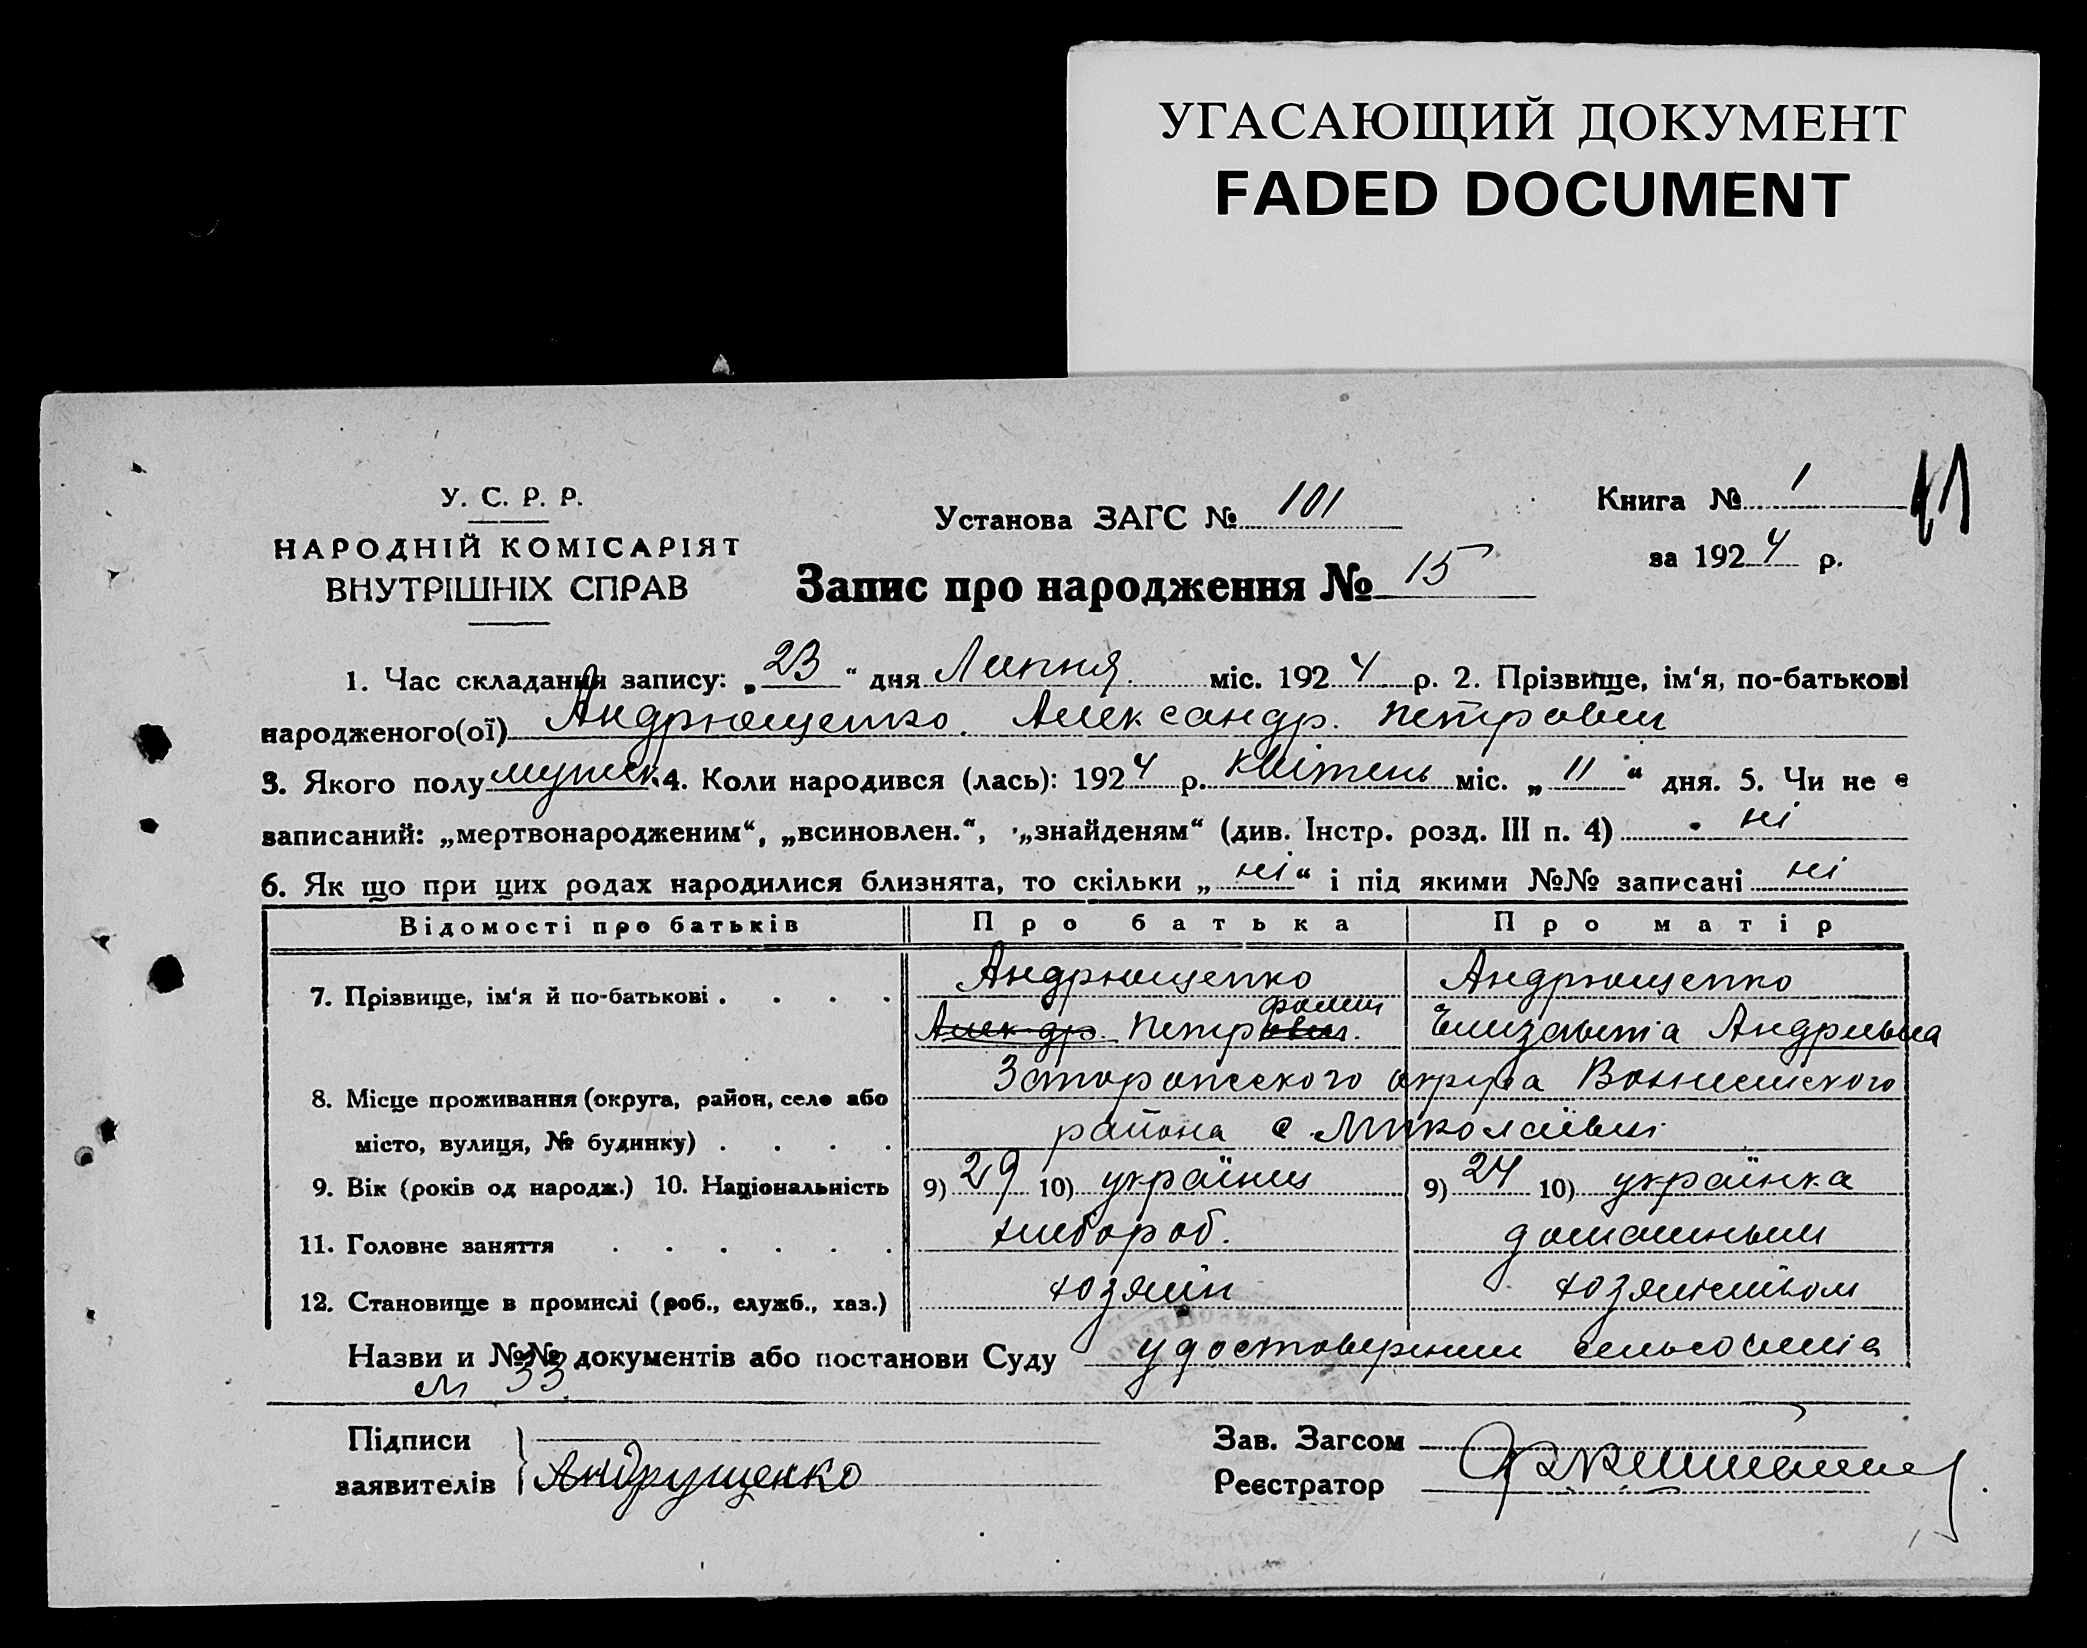 УГАСАЮЩИЙ ДОКУМЕНТ
FADED DOCUMENT
У. С. Р. Р.
НАРОДНІЙ КОМІСАРІЯТ
ВНУТРІШНІХ СПРАВ
Установа ЗАГС № 101
Книга № 1
41
за 1924 р.
Запис про народження № 15
1. Час складання запису: „23“ дня Липня міс. 1924 р. 2. Прізвище, ім‘я, по-батькові
народженого(ої) Андрющенко Александр Петрович
3. Якого полу мужеск. 4. Коли народився (лась): 1924 р. Квітень міс. „11“ дня. 5. Чи не є
записаний: „мертвонародженим“, „всиновлен.“, „знайденям“ (див. Інстр. розд. III п. 4) ні
6. Як що при цих родах народилися близнята, то скільки „ні“ і під якими №№ записані ні
Відомості про батьків Про батька Про матір
7. Прізвище, ім‘я й по-батькові . . . . Андрющенко Андрющенко
Алек-др. Петрович. Елизавета Андреевна
8. Місце проживання (округа, район, село або Запорожского округа Вознесенского
місто, вулиця, № будинку) . . . . района с Миколаївки
9. Вік (років од народж.) 10. Національність 9) 29 10) українец 9) 24 10) українка
11. Головне заняття . . . . . . хлібороб. домашньим
12. Становище в промислі (роб., служб., хаз.) хозяїн хозяйством
Назви и №№ документів або постанови Суду удостоверение
№ 33
Підписи
заявителів Андрущенко
Зав. Загсом
Реєстратор